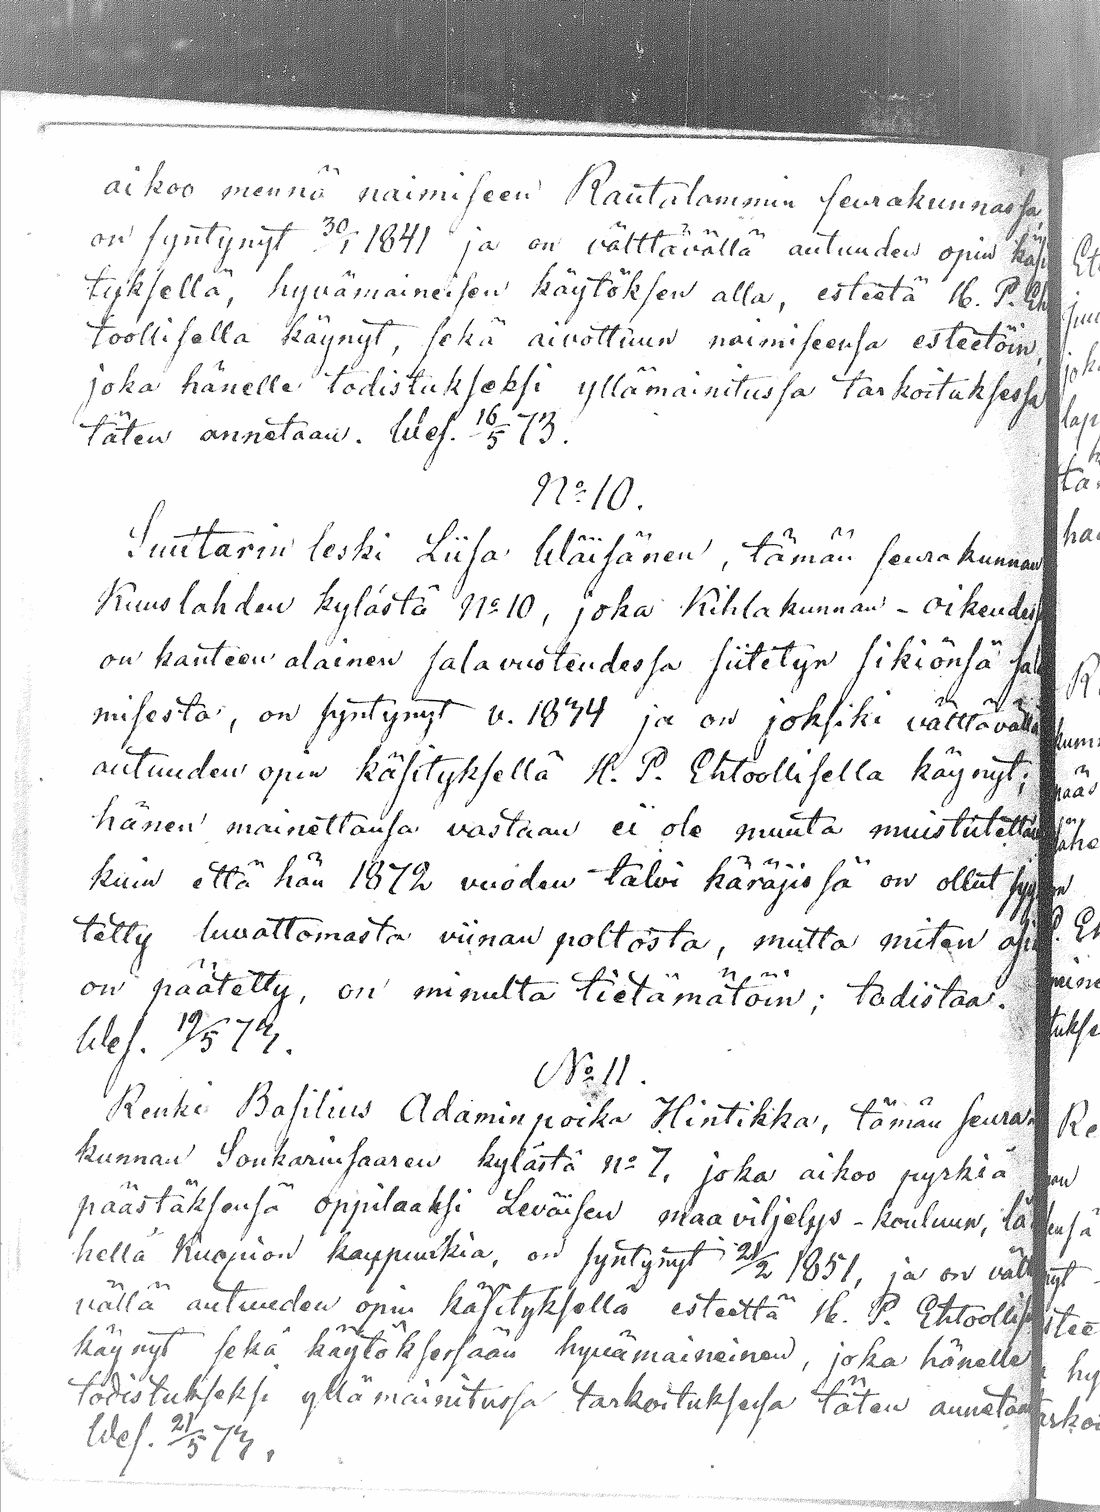 aikoo mennä naimiseen Rautalammin seurakunnassa,
on syntynyt 30/1 1841 ja on välttävällä autuuden opin käsi
tyksellä, hyvämaineisen käytöksen alla, esteetä H. P. Eh
toollisella käynyt, sekä aivottuun naimiseensa esteetöin,
joka hänelle todistukseksi yllämainitussa tarkoituksessa
täten annetaan. Wes. 16/5 73.
No 10.
Suutarin leski Liisa Wäisänen, tämän seurakunnan
Kuuslahden kylästä No 10, joka Kihlakunnan-oikeudessa
on kanteen alainen salavuoteudessa siitetyn sikiönsä sala
misesta, on syntynyt v. 1834 ja on joksiki välttävällä
autuuden opin käsityksellä H. P. Ehtoollisella käynyt;
hänen mainettansa vastaan ei ole muuta muistutettava
kuin että hän 1872 vuoden talvi käräjissä on ollut syy
tetty luvattomasta viinan poltosta, mutta miten asia
on päätetty, on minulta tietämätöin; todistaa.
Wes. 19/5 73.
No 11.
Renki Basilius Adaminpoika Hintikka, tämän seura-
kunnan Sonkarinsaaren kylästä No 7, joka aikoo pyrkiä
päästäksensä oppilaaksi Leväisen maaviljelys-kouluun, lä
hellä Kuopion kaupunkia, on syntynyt 21/2 1851, ja on vält
vällä autuuden opin käsityksellä esteettä H. P. Ehtoollis
käynyt sekä käytöksessään hyvämaineinen, joka hänelle
todistukseksi yllämainitussa tarkoituksessa täten annetaan
Wes. 21/5 73.